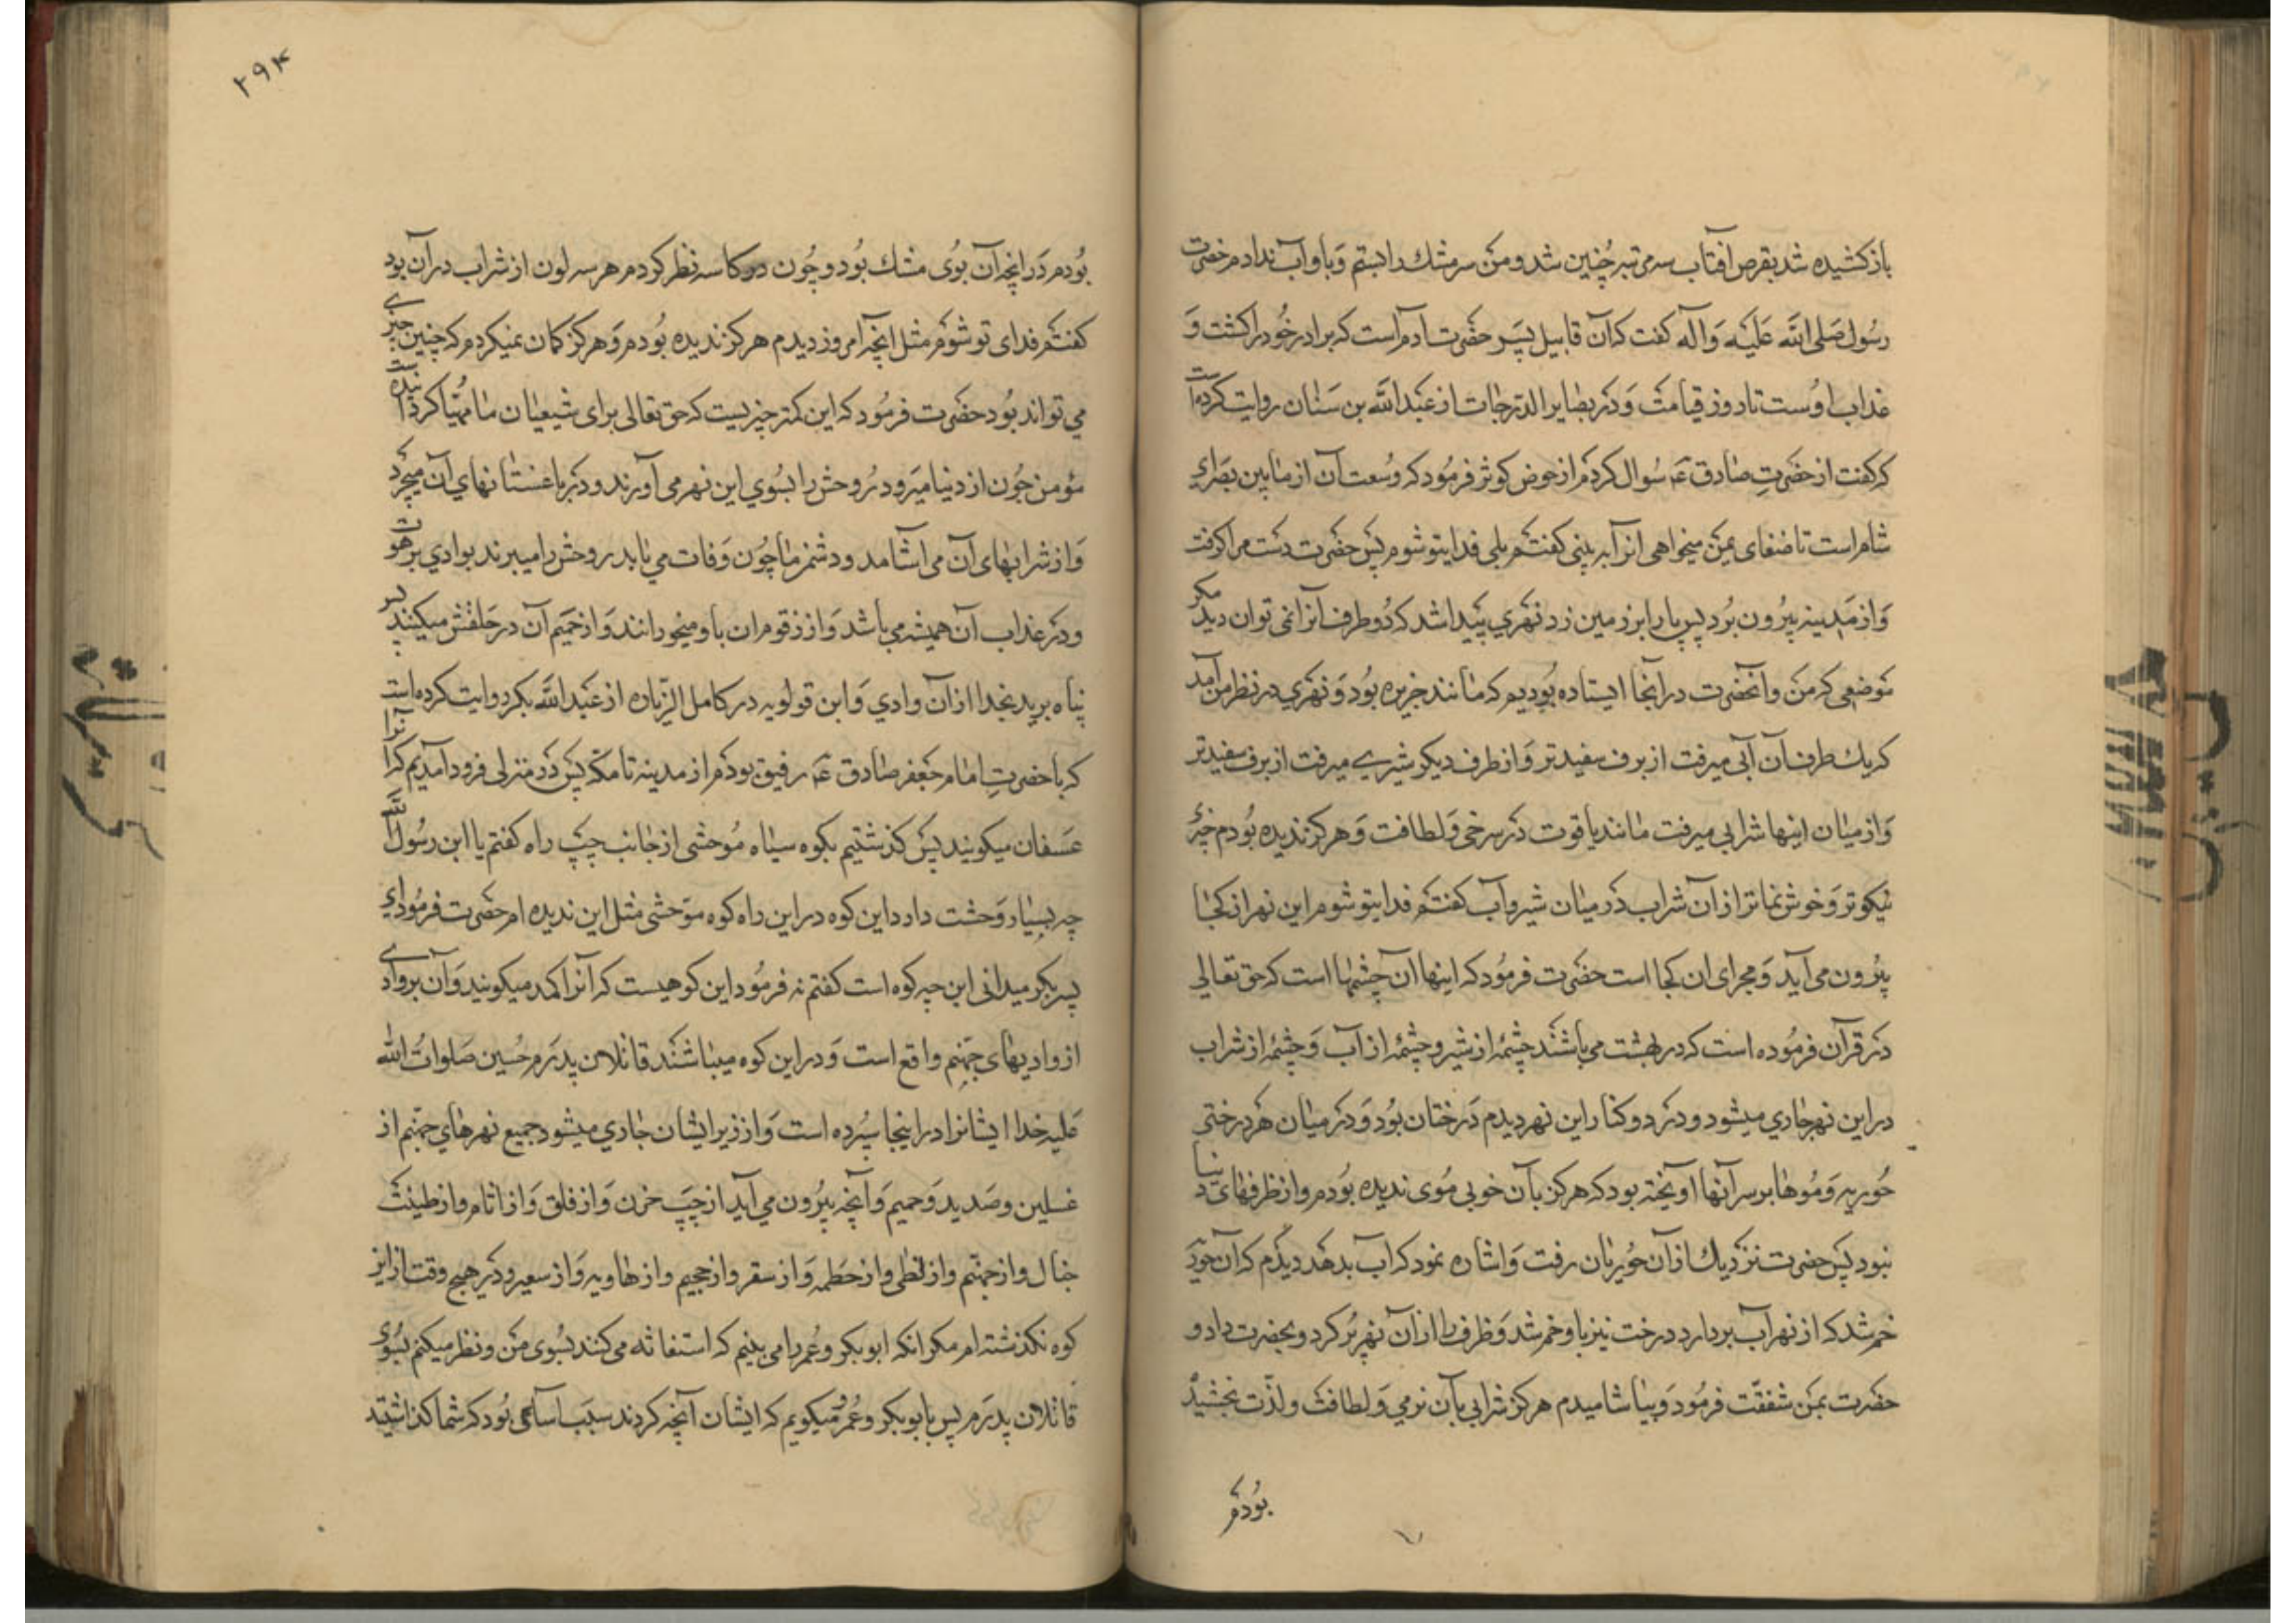 باز کشیده شد بقرص افتاب سه مرتبه چنین شد و من سر مشک را بستم و باو آب ندادم حضرت
رسول صلی الله علیه و آله کفت که آن قابیل پسر حضرت آدم است که برادر خود را کشت و
عذاب اوست تا روز قیامت و در بصایر الدرجات از عبدالله بن سنان روایت کرده است
که کفت از حضرت صادق ع سوال کردم از حوض کوثر فرمود که وسعت آن از مابین بصرای
شام است تا صنعای یمن میخواهی انرا به بینی کفتم بلی فدایتو شوم پس حضرت دست مرا کرفت
و از مدینه بیرون برد پس پا را بر زمین زد نهری پیدا شد که دو طرف انرا نمی توان دید مکر
موضعی که من و انحضرت در آنجا ایستاده بودیم که مانند جزیره بود و نهری در نظر من آمد
که یک طرف آن آبی میرفت از برف سفیدتر و از طرف دیکر شیری میرفت از برف سفیدتر
و از میان اینها شرابی میرفت مانند یاقوت در سرخی و لطافت و هرکز ندیده بودم چیزی
نیکوتر و خوش نماتر از آن شراب در میان شیر و آب کفتم فدایتو شوم این نهر از کجا
بیرون می آید و مجرای ان کجا است حضرت فرمود که اینها ان چشمها است که حق تعالی
در قرآن فرموده است که در بهشت می باشند چشمه از شیر و چشمه از آب و چشمه از شراب
در این نهر جاری میشود و در دو کنار این نهر دیدم درختان بود و در میان هر درختی
حوریه و موها بر سر آنها آویخته بود که هرکز بآن خوبی موی ندیده بودم و از ظرفهای دنیا
نبود پس حضرت نزدیک از آن حوریان رفت و اشاره نمود که اب بدهد دیدم که آن حوریه
خم شد که از نهر آب بردارد درخت نیز باو خم شد و ظرف را از آن نهر پر کرد و بحضرت داد و
حضرت بمن شفقت فرمود و بیاشامیدم هرکز شرابی بآن نرمی و لطافت و لذت نچشیده
بودم
۲۹۴
بودم در انچه آن بوی مشک بود و چون در کاسه نظر کردم هر سه لون از شراب در آن بود
کفتم فدای تو شوم مثل آنچه امروز دیدم هرکز ندیده بودم و هرکز کمان نمیکردم که چنین چیزی
می تواند بود حضرت فرمود که این کمتر چیزیست که حق تعالی برای شیعیان ما مهیا کردانیده است
مؤمن چون از دنیا میرود روحش را بسوی این نهر می آورند و در باغستانهای آن میچرد
و از شرابهای آن می اشامد و دشمن ما چون وفات می یابد روحش را میبرند بوادی برهوت
و در عذاب آن همیشه می باشد و از زقوم ان باو میخورانند و از حمیم آن در حلقش میکنند پس
پناه برید بخدا از آن وادی و ابن قولویه در کامل الزیاره از عبدالله بکر روایت کرده است
که با حضرت امام جعفر صادق ع رفیق بودم از مدینه تا مکه پس در منزلی فرود آمدیم که آنرا
عسفان میکویند پس کذشتیم بکوه سیاه موحشی از جانب چپ راه کفتم یا ابن رسول الله
چه بسیار وحشت دارد این کوه در این راه کوه موحشی مثل این ندیده ام حضرت فرمود ای
پسر بکر میدانی این چه کوه است کفتم نه فرمود این کوهیست که آنرا کمد میکویند و آن بر وادی
از وادیهای جهنم واقع است و در این کوه میباشند قاتلان پدرم حسین صلوات الله
علیه خدا ایشانرا در اینجا سپرده است و از زیر ایشان جاری میشود جمیع نهرهای جهنم از
غسلین و صدید و حمیم و آنچه بیرون می آید از چپ حزن و از فلق و از اثام و از طینت
خبال و از جهنم و از لظی و از حطمه و از سقر و از جحیم و از هاویه و از سعیر و در هیچ وقت از این
کوه نکذشته ام مکر انکه ابوبکر و عمر را می بینم که استغاثه می کنند بسوی من و نظر میکنم بسوی
قاتلان پدرم پس بابوبکر و عمر میکویم که ایشان آنچه کردند سبب اساسی بود که شما کذاشتید